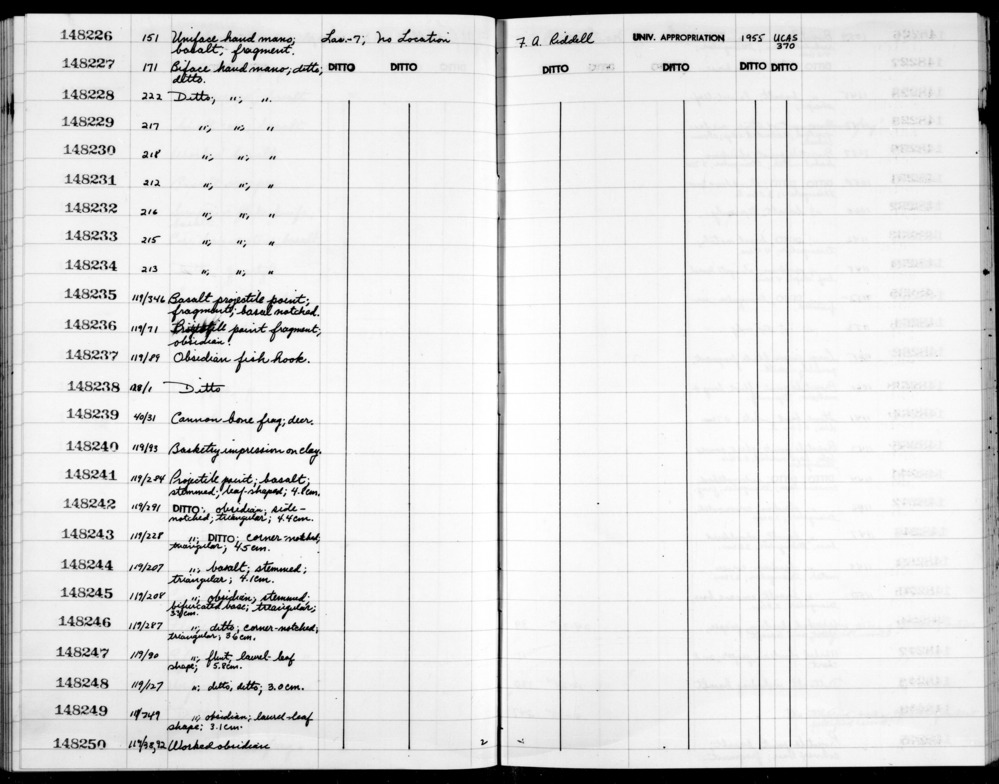 148226 151 Uniface hand mano; Las.-7; No Location F. A. Riddell UNIV. APPROPRIATION 1955 UCAS 370
basalt, fragment.
148227 171 Biface hand mano; ditto; DITTO DITTO DITTO DITTO DITTO DITTO
ditto.
148228 222 Ditto; "; "
148229 217 "; "; "
148230 218 "; "; "
148231 212 "; "; "
148232 216 "; "; "
148233 215 "; "; "
148234 213 "; "; "
148235 119/346 Basalt projectile point;
fragment; basal notched.
148236 119/71 point fragment;
obsidian.
148237 119/89 Obsidian fish hook.
148238 128/1 Ditto
148239 40/31 Cannon bone frag; deer.
148240 119/93 Basketry impression on clay.
148241 119/284 Projectile point; basalt;
stemmed; leaf-shaped; 4.8cm.
148242 119/291 DITTO; obsidian; side-
notched; triangular; 4.4cm.
148243 119/228 "; DITTO; corner-notched;
triangular; 4.5cm.
148244 119/207 "; basalt; stemmed;
triangular; 4.1cm.
148245 119/208 "; obsidian; stemmed;
bifurcated base; triangular;
148246 119/287 "; ditto; corner-notched;
triangular; 3.6cm.
148247 119/90 "; flint, laurel-leaf
shape; 5.8cm.
148248 119/127 "; ditto, ditto; 3.0cm.
148249 119/249 "; obsidian; laurel-leaf
shape; 3.1cm.
148250 119/38,92 Worked obsidian 2